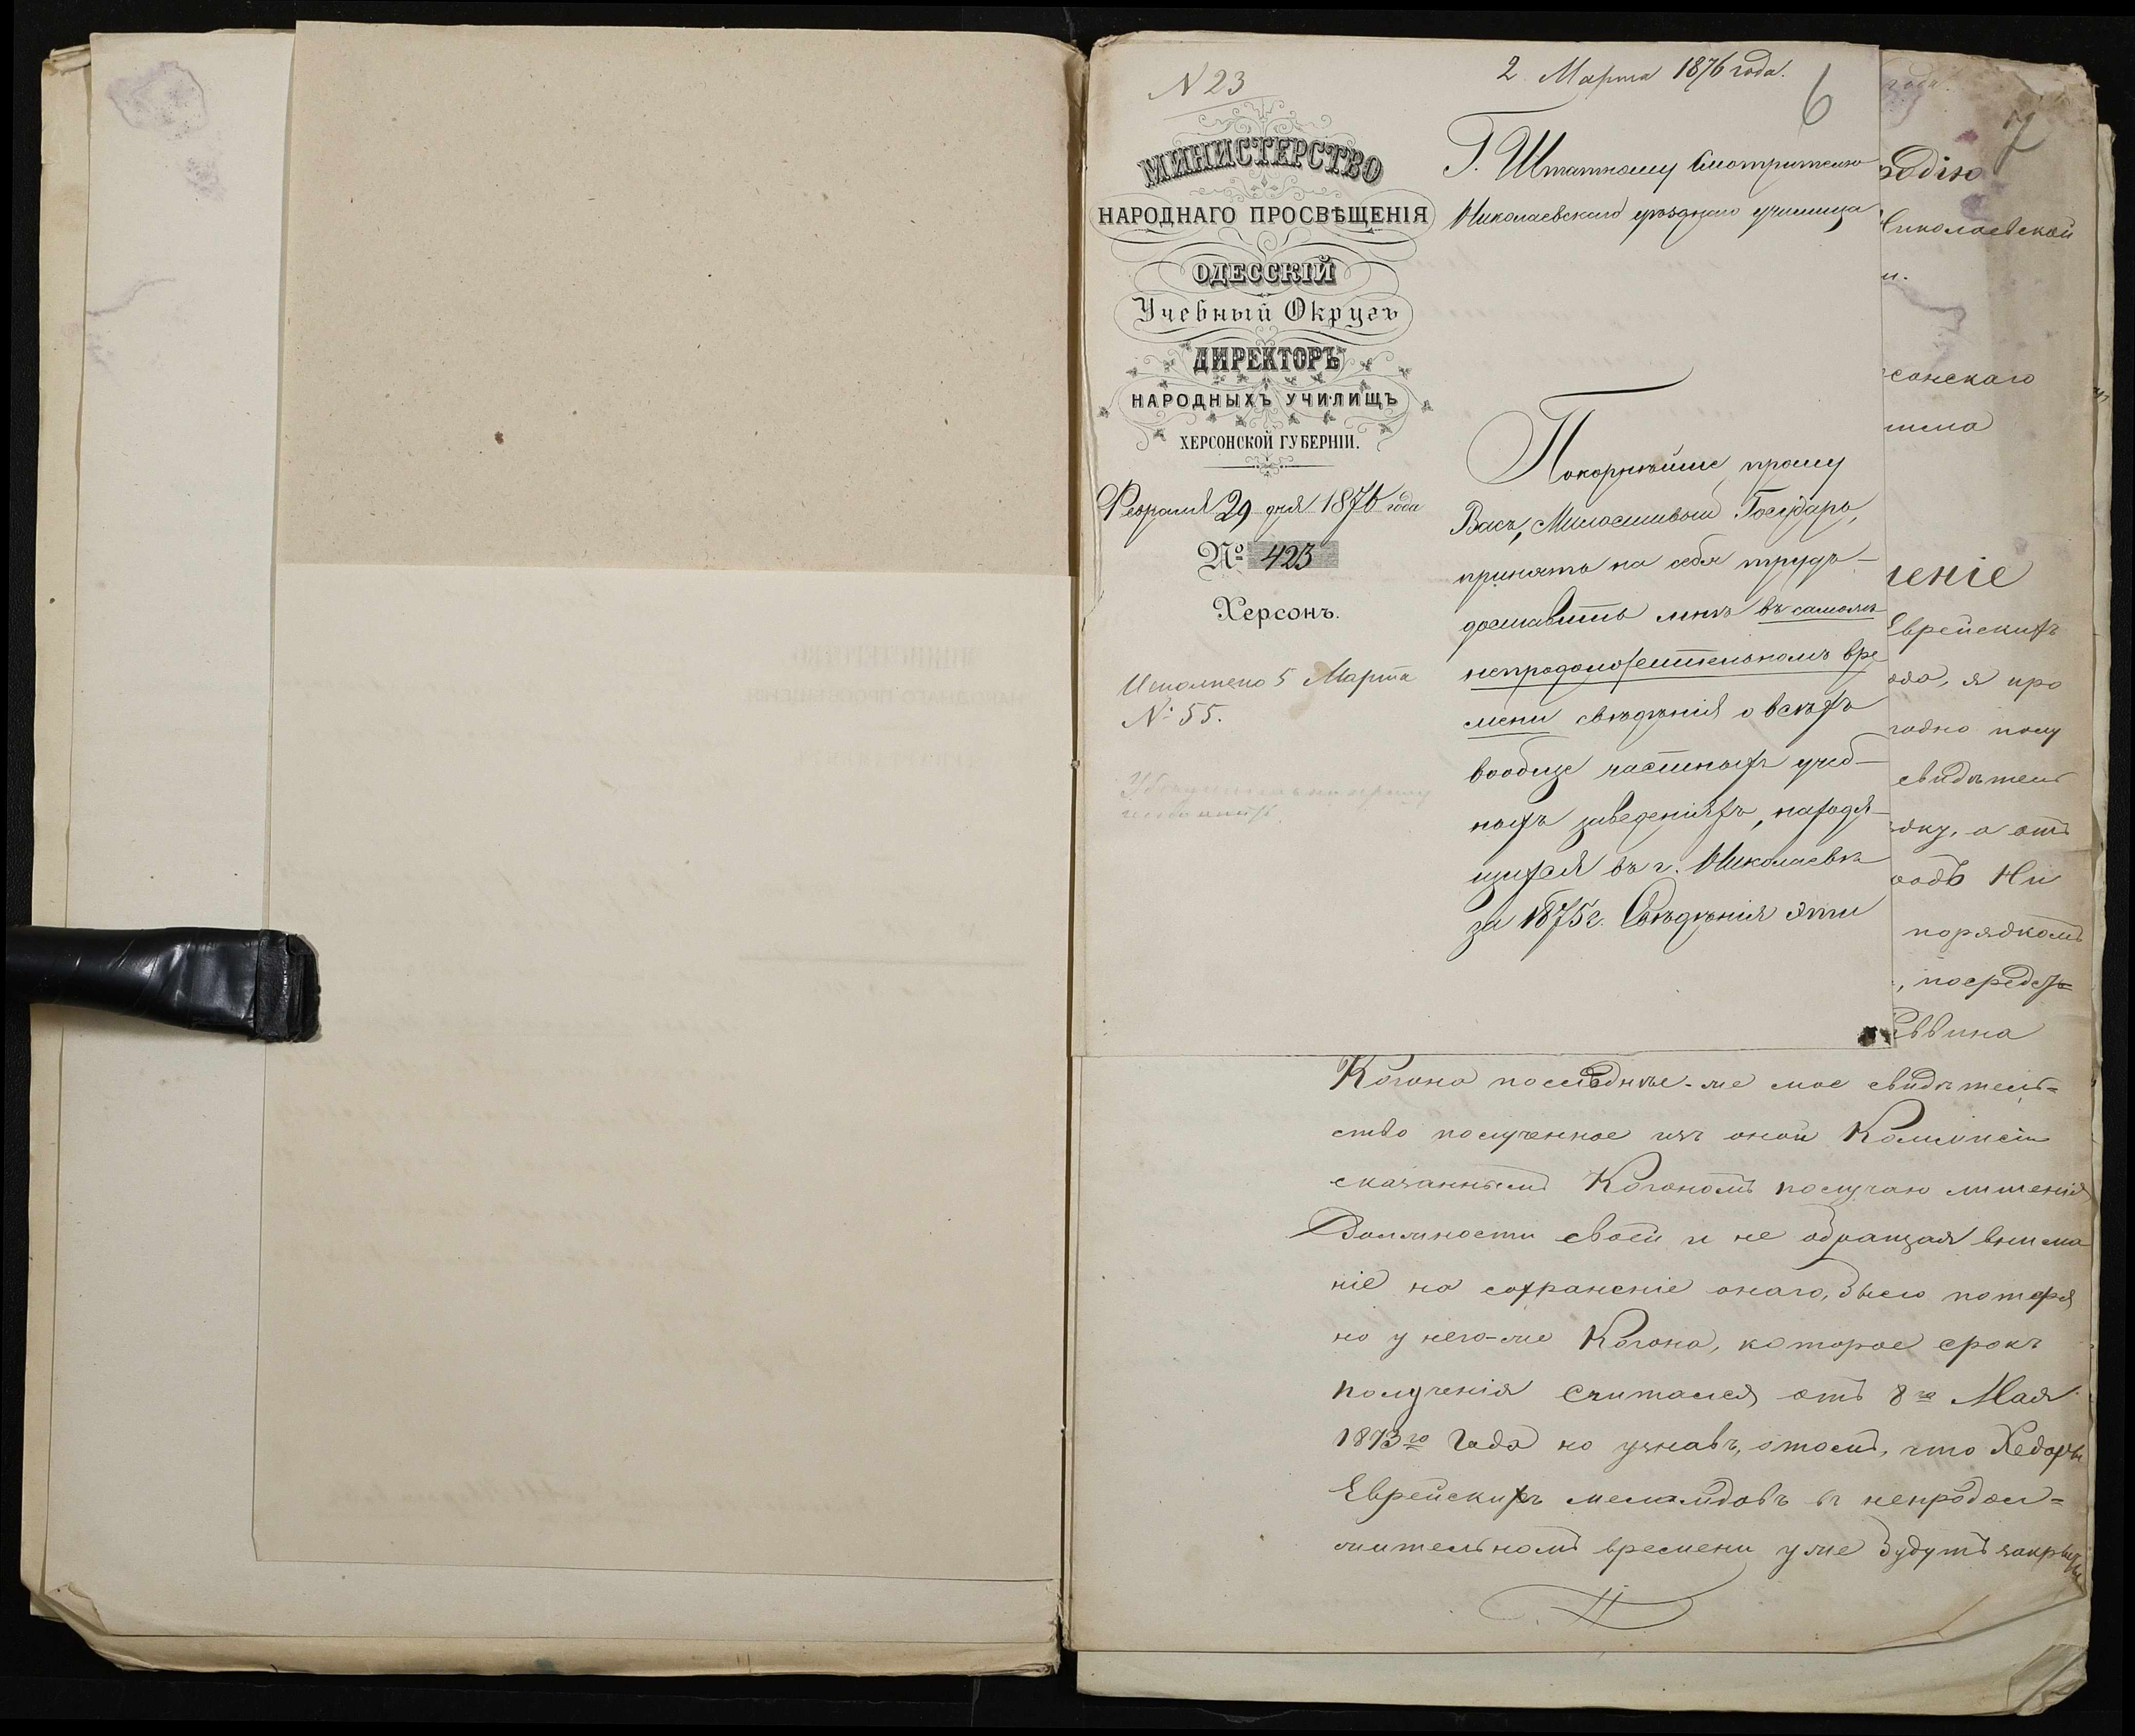 N 23
2. Марта 1876 года.
6
МИНИСТЕРСТВО
НАРОДНАГО ПРОСВѢЩЕНІЯ
ОДЕССКІЙ
Учебный Округъ
ДИРЕКТОРЪ
НАРОДНЫХЪ УЧИЛИЩЪ
ХЕРСОНСКОЙ ГУБЕРНІИ.
Февраля 29 дня 1876 года
№ 423
Херсонъ.
Исполнено 5 Марта
№ 55.
Г. Штатному Смотрителю
Николаевскаго уѣзднаго училища
Покорнѣйше прошу
Васъ, Милостивый Государь,
принять на себя трудъ
доставить мнѣ въ самомъ
непродолжительномъ вре
мени свѣдѣнія о всѣхъ
вообще частныхъ учеб-
ныхъ заведеніяхъ, находя-
щихся въ г. Николаевѣ
за 1875 г. Свѣдѣнія эти
года.
7
одію
Николаевской
и.
сонскаго
еніе
Еврейскихъ
ода, я про
годно полу
свидѣтель
оку, а отъ
родѣ Ни
порядкомъ
, посредст=
Раввина
Когана послѣднѣе-же мое свидѣтель=
ство полученное изъ оной Коммисіи
сказаннымъ Коганомъ получаю лишенія
Должности своей и не обращая внима
ніе на сохраненіе онаго, было потеря
но у него-же Когана, которое срокъ
полученія считался отъ 8го Мая
1873го Года но узнавъ, отомъ, что Хедары
Еврейскихъ меламдовъ въ непродол=
жительномъ времени уже будутъ закрыты